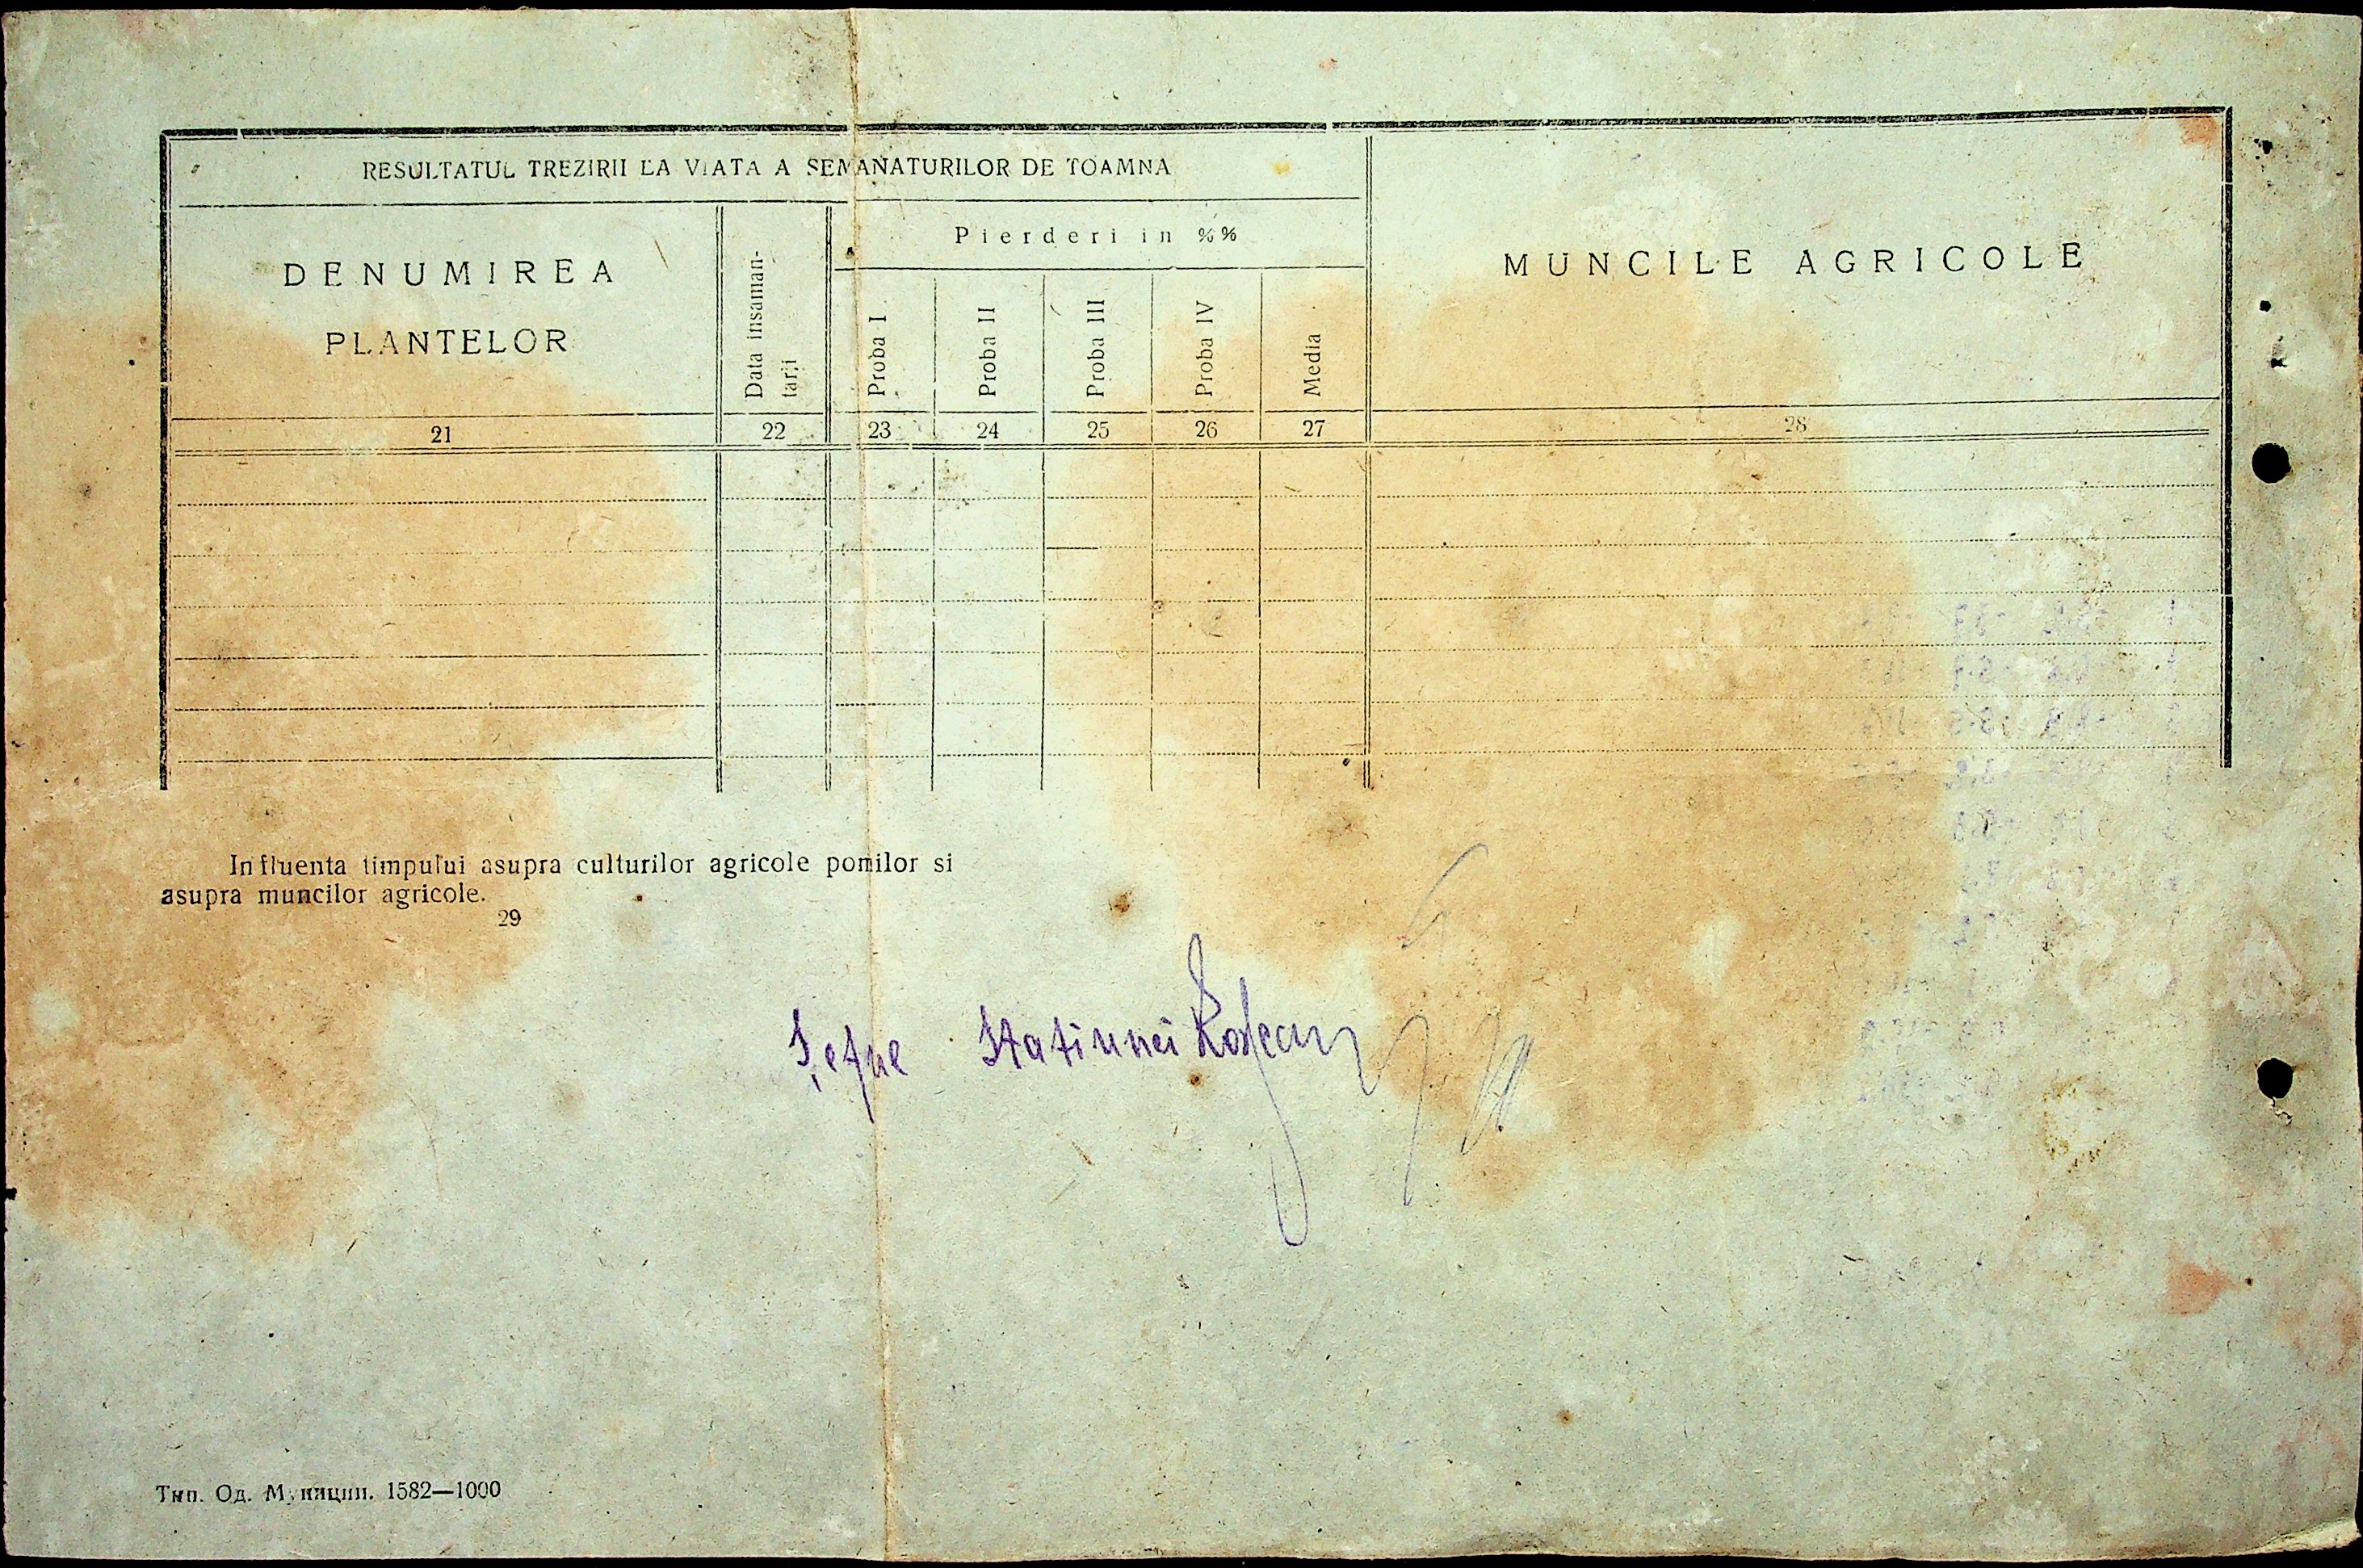 RESULTATUL TREZIRII LA VIATA A SEMANATURILOR DE TOAMNA
DENUMIREA
PLANTELOR
Data insaman-
tarii
Pierderi in %%
Proba I
Proba II
Proba III
Proba IV
Media
MUNCILE AGRICOLE
21 22 23 24 25 26 27 28
Influenta timpului asupra culturilor agricole pomilor si
asupra muncilor agricole.
29
Șefue Statiunei
Тип. Од. Муницип. 1582—1000